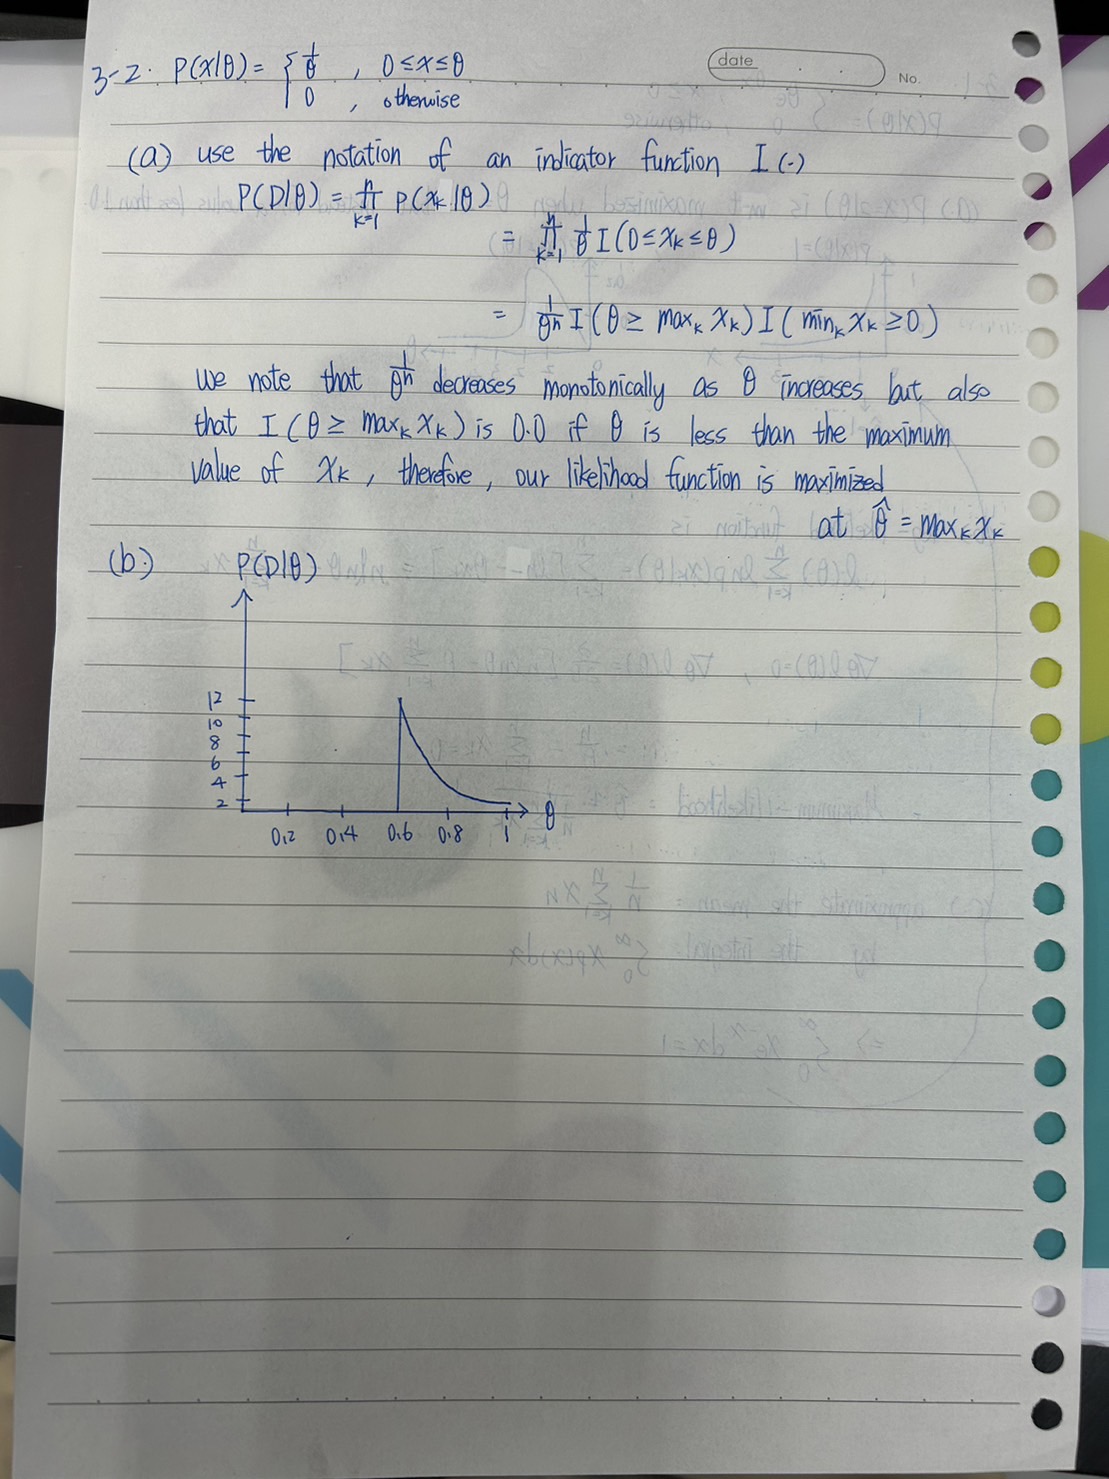 date
No.
3-2. P(x|θ) = { 1/θ , 0≤x≤θ
0 , otherwise
(a) use the notation of an indicator function I(·)
P(D|θ) = ∏ₖ₌₁ⁿ P(xₖ|θ)
= ∏ₖ₌₁ⁿ 1/θ I(0≤xₖ≤θ)
= 1/θⁿ I(θ ≥ maxₖ xₖ) I(minₖ xₖ ≥0)
we note that 1/θⁿ decreases monotonically as θ increases but also
that I(θ ≥ maxₖ xₖ) is 0.0 if θ is less than the maximum
value of xₖ, therefore, our likelihood function is maximized
at θ̂ = maxₖ xₖ
(b.) P(D|θ)
12
10
8
6
4
2
0.2 0.4 0.6 0.8 1 θ